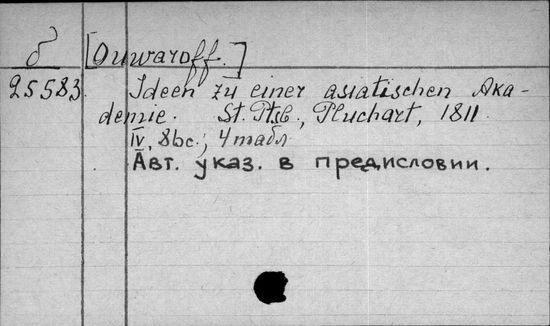 б [Ouwaroff.]
25583. Ideen zu einer asiatischen Aka-
demie. St. Ptsb., Pluchart, 1811
IV, 8 bc.; 4 табл
Авт. указ. в предисловии.